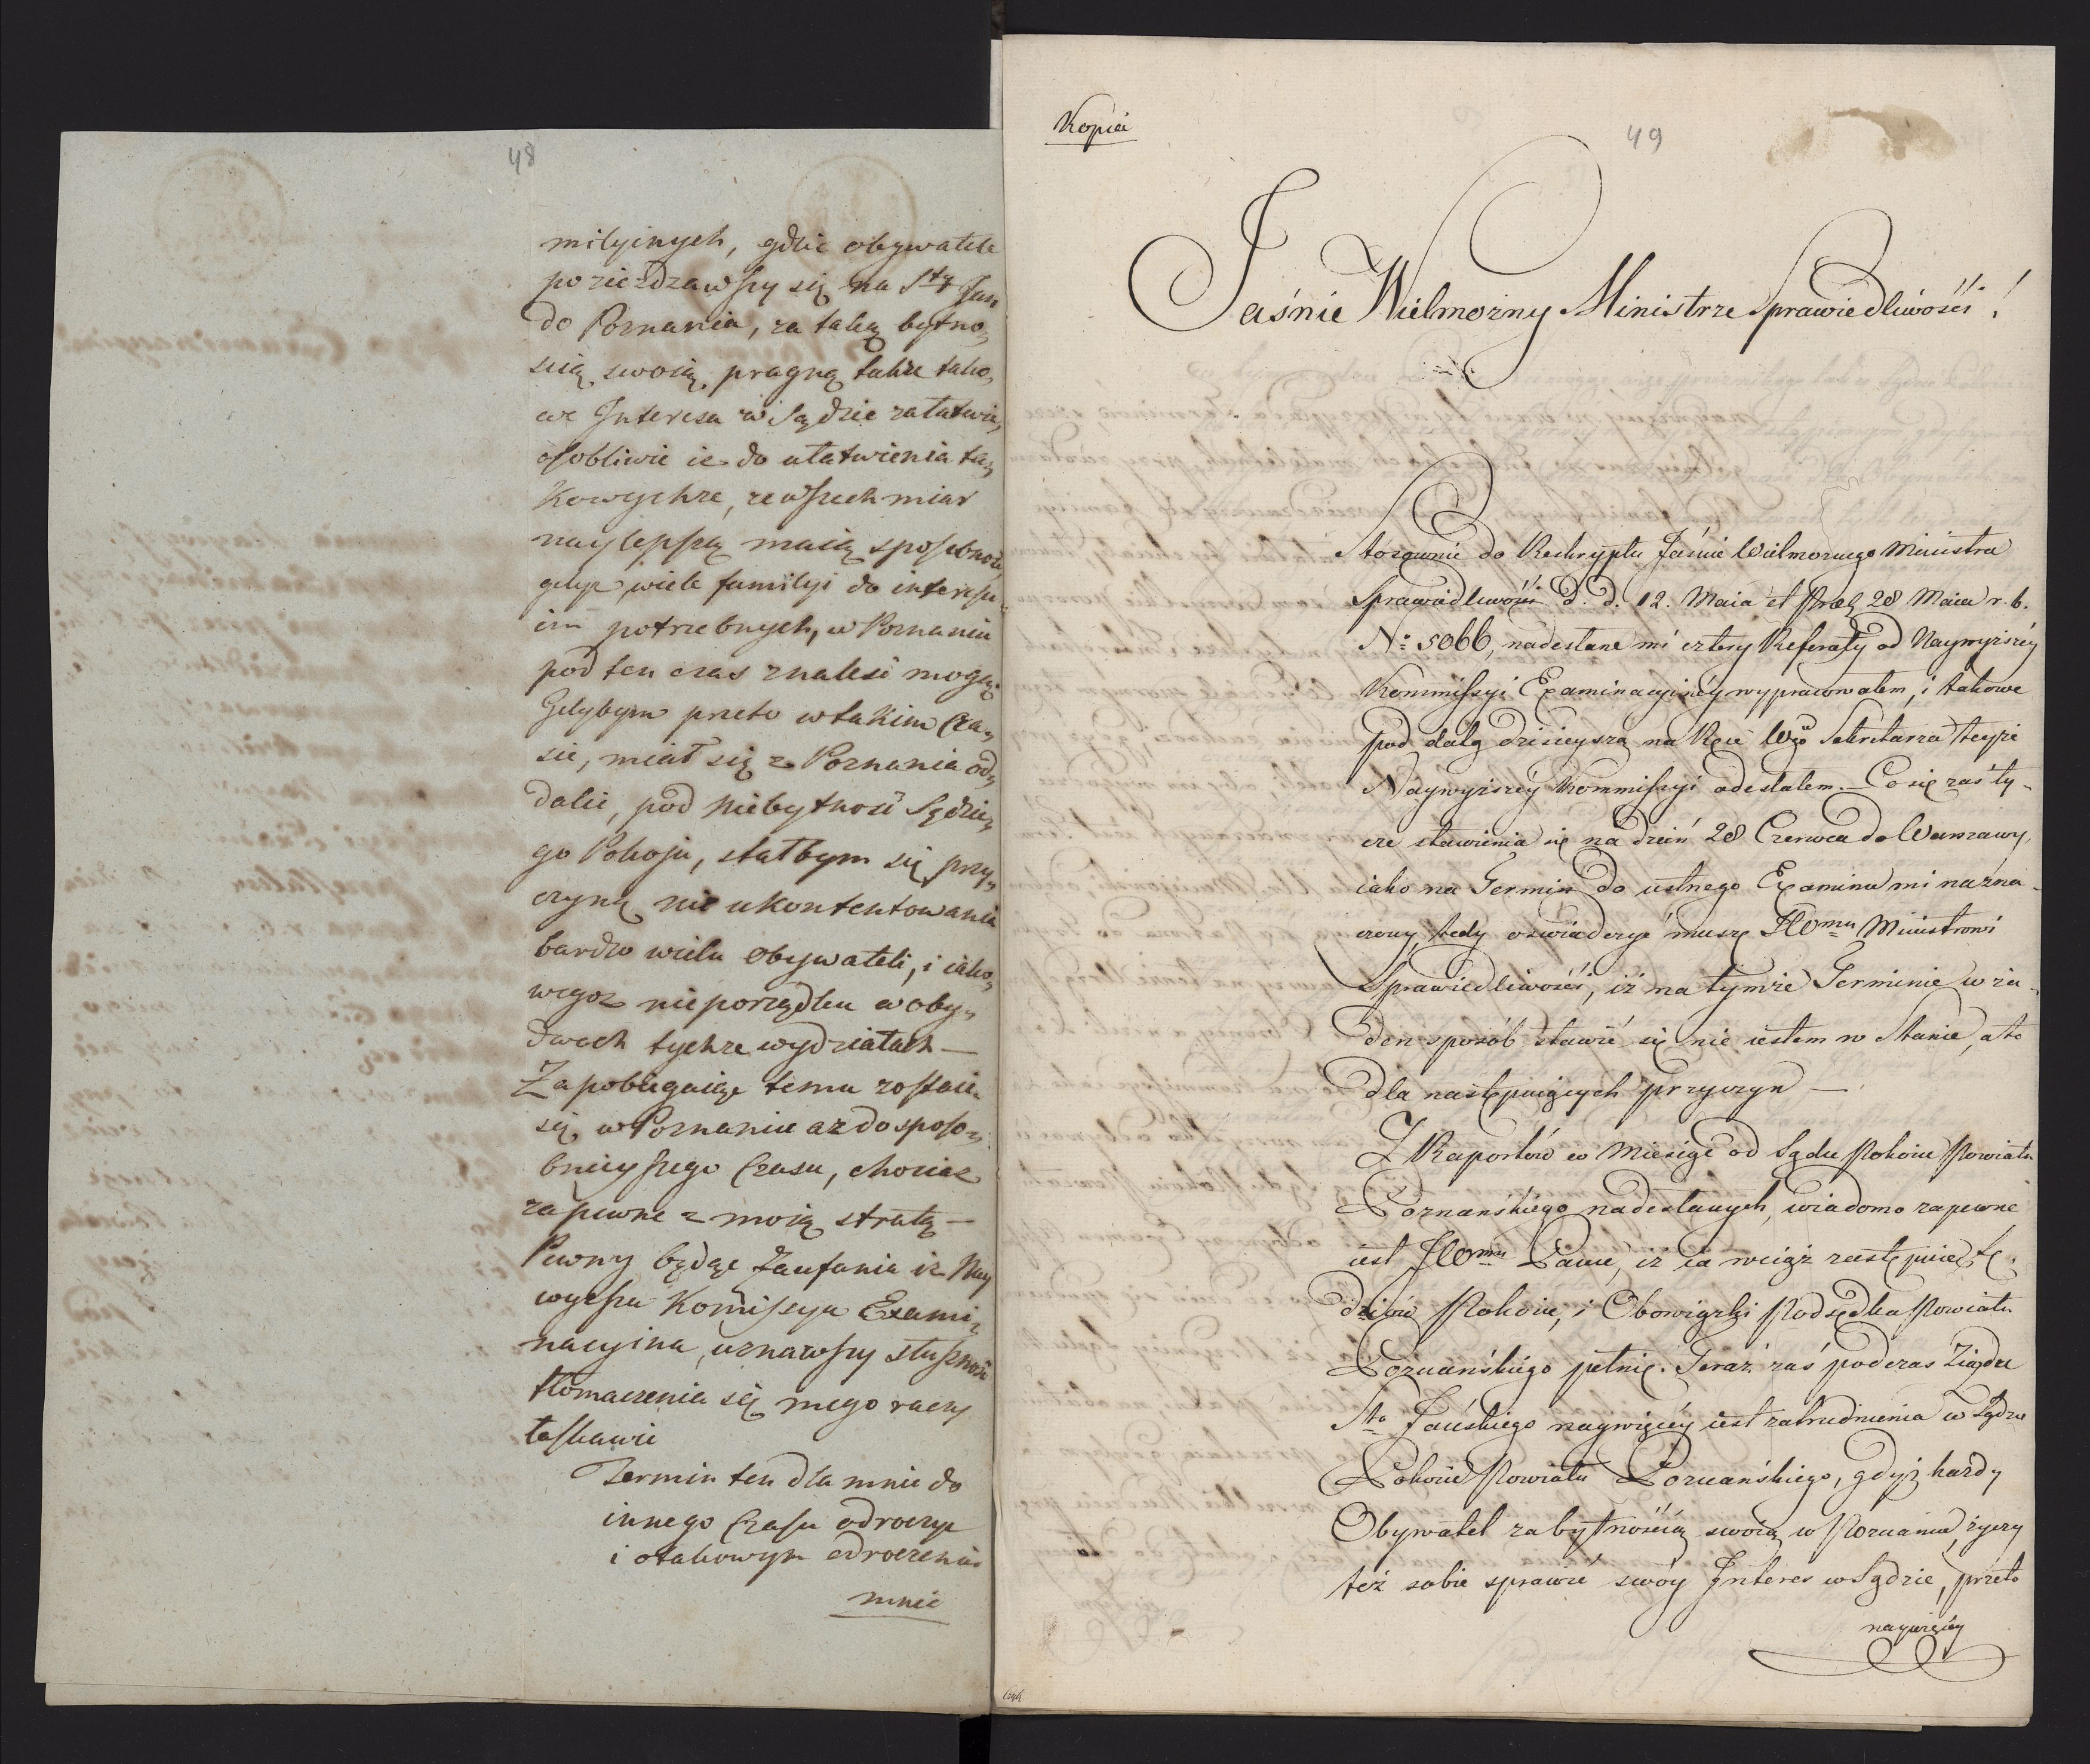 48
milyinych, gdzie obywatele
poziezdzawszy się na Sty Jan
do Poznania, za taką bytno„
scią swoią pragną także tako„
we Interesa w Sądzie załatwić,
osobliwie że do ułatwienia ta„
kowychze, ze wszech miar
naylepszą maią sposobność,
gdyż wiele familyi do interesu
im potrzebnych, w Poznaniu
pod ten czas znaleść mogą.
Gdybym przeto w takim Cza„
sie, miał się z Poznania od„
dalić, pod niebytność Sędzie„
go Pokoju, stałbym się przy„
czyną nie ukontentowania
bardzo wielu obywateli, i iako„
wegoz nieporządku w oby„
dwoch tychze wydziałach —
Zapobiegaiąc temu zostaie
się w Poznaniu az do sposo„
bnieyszego Czasu, chociaz
zapewne z moią stratą —
Pewny będąc Zaufania iz Nay
wyzsza Komissya Exami„
nacyina, uznawszy słuszność
tłomaczenia się mego raczy
łaskawie
Termin ten dla mnie do
innego Czasu odroczyć
i o takowym odroczeniu
mnie
Kopia
49
Jaśnie Wielmożny Ministrze Sprawiedliwości!
Stósownie do Reskryptu Jaśnie Wielmoznego Ministra
Sprawiedliwości d. d. 12. Maia et Praes 28 Maia r. b.
No: 5066, nadesłane mi cztery Referaty od Naywyższéy
Kommissyi Examinacyinéy wypracowałem, i takowe
pod datą dzisieyszą na Ręce Wgo Sekretarza teyże
Naywyższéy Kommissyi odesłałem. Co się zaś ty-
cze stawienia się na dzień 28 Czerwca do Warszawy,
iako na Termin do ustnego Examinu mi nazna-
czony, tedy oświadczyć muszę JWmu Ministrowi
Sprawiedliwości, iż na tymże Terminie w ża-
den sposób stawić się nie iestem w Stanie, a to
dla następuiących przyczyn —
Z Raportów co Miesiąc od Sądu Pokoiu Powiatu
Poznańskiego nadesłanych, wiadomo zapewne
iest JWmu Panu, iż ia wciąż zastępuię Sę-
dziów Pokoiu, i Obowiązki Podsędka Powiatu
Poznańskiego pełnię. Teraz zaś podczas Ziazdu
Sto Jańskiego naywięcéy iest zatrudnienia w Sądzie
Pokoiu Powiatu Poznańskiego, gdyż każdy
Obywatel za bytnością swoią w Poznaniu, życzy
też sobie sprawić swóy Interes w Sądzie, przeto
naywięcéy